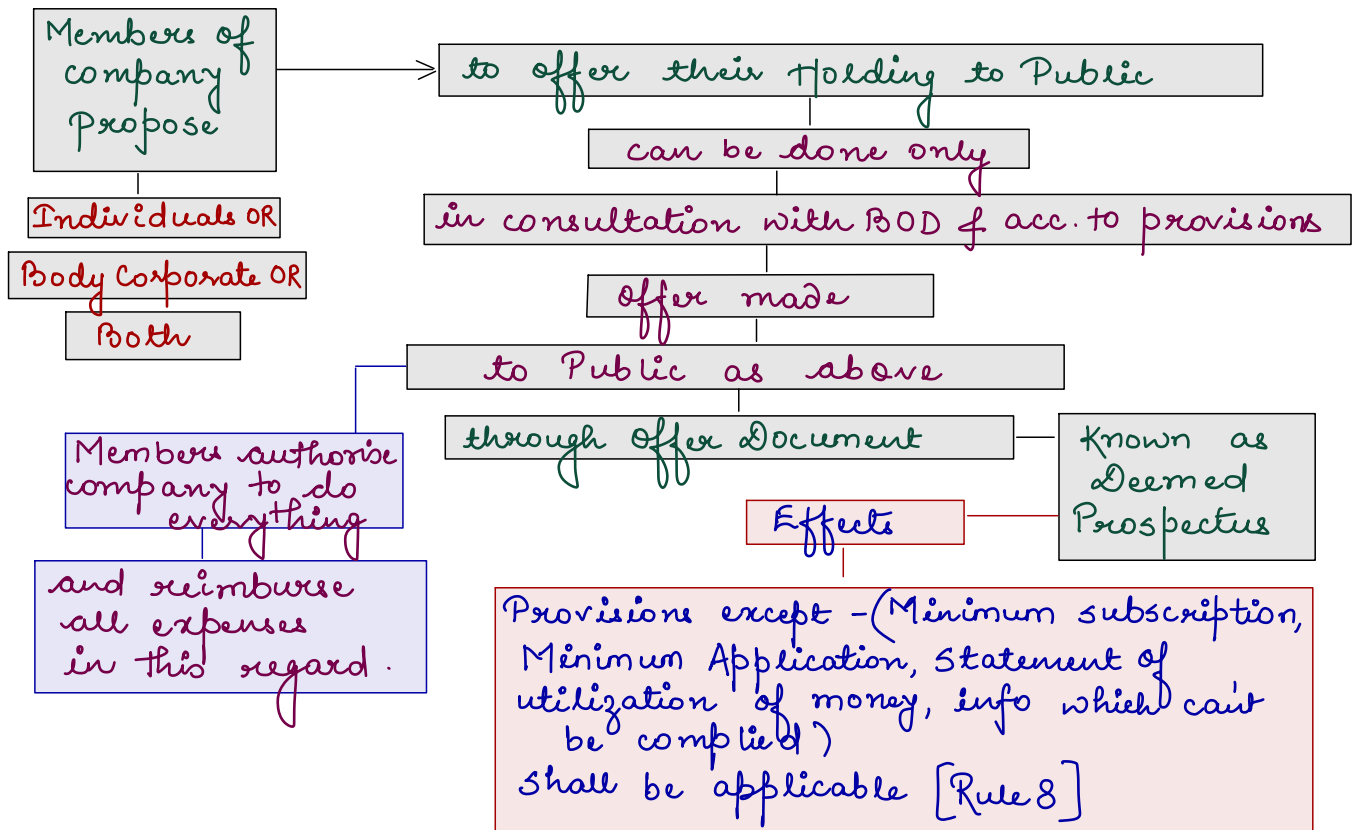 Members of
company
Propose
to offer their Holding to Public
can be done only
in consultation with BOD & acc. to provisions
Individuals OR
Body Corporate OR
Both
offer made
to Public as above
through Offer Document
Known as
Deemed
Prospectus
Members authorise
company to do
everything
and reimburse
all expenses
in this regard.
Effects
Provisions except - (Minimum subscription,
Minimum Application, Statement of
utilization of money, info which can't
be complied)
shall be applicable [Rule 8]